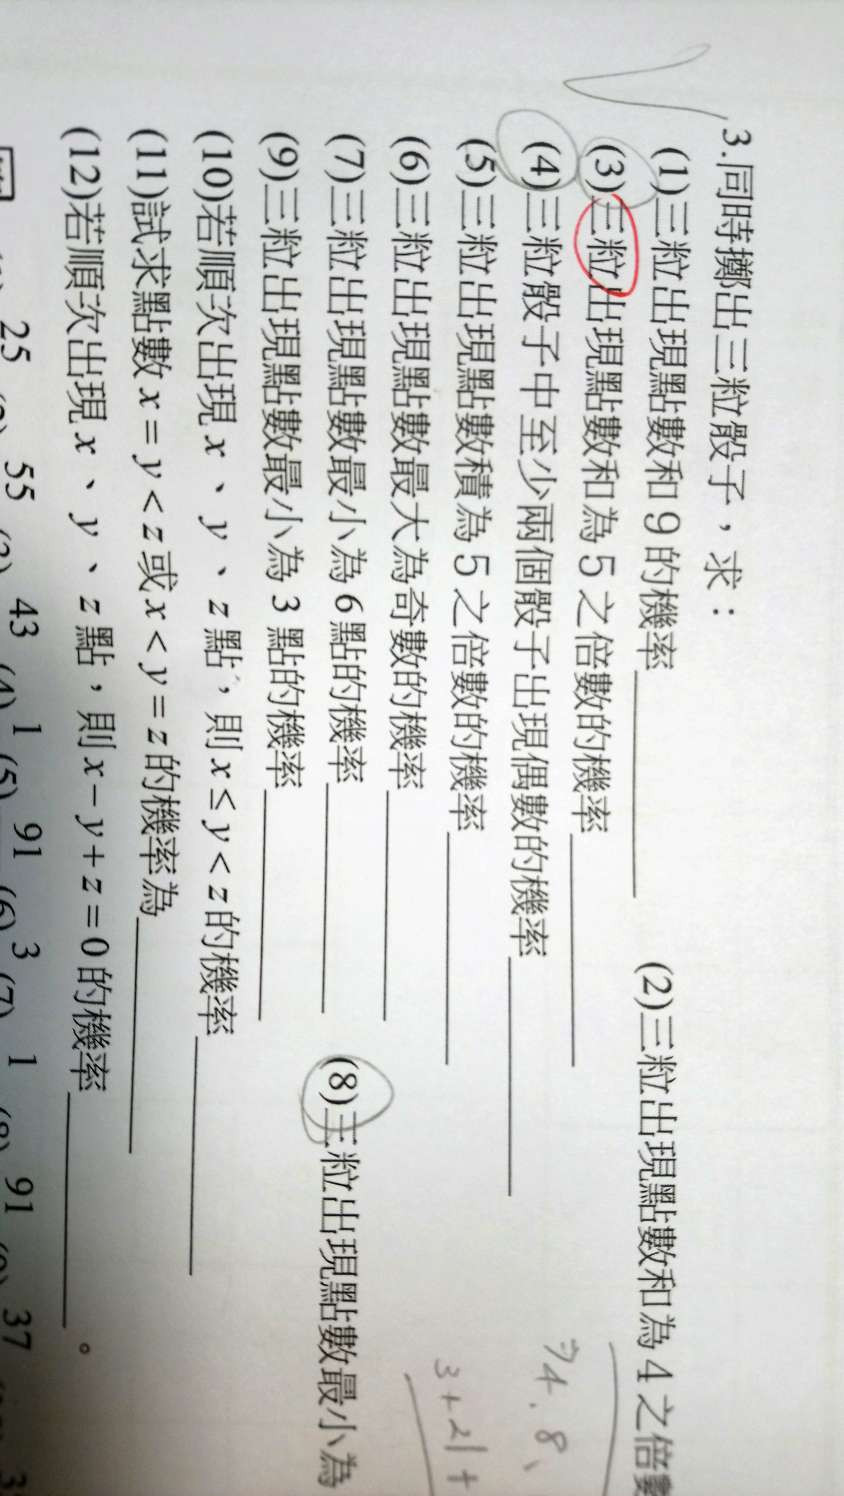 3.同時擲出三粒骰子，求：
(1)三粒出現點數和9的機率 (2)三粒出現點數和為4之倍數
(3)三粒出現點數和為5之倍數的機率
(4)三粒骰子中至少兩個骰子出現偶數的機率
(5)三粒出現點數積為5之倍數的機率
(6)三粒出現點數最大為奇數的機率
(7)三粒出現點數最小為6點的機率 (8)三粒出現點數最小為
(9)三粒出現點數最小為3點的機率
(10)若順次出現x、y、z點，則x≤y<z的機率
(11)試求點數x=y<z或x<y=z的機率為
(12)若順次出現x、y、z點，則x−y+z=0的機率。
4、8、
3+21+
25 55 43 1 91 3 1 91 37
(4) (5) (6) (7) (8)